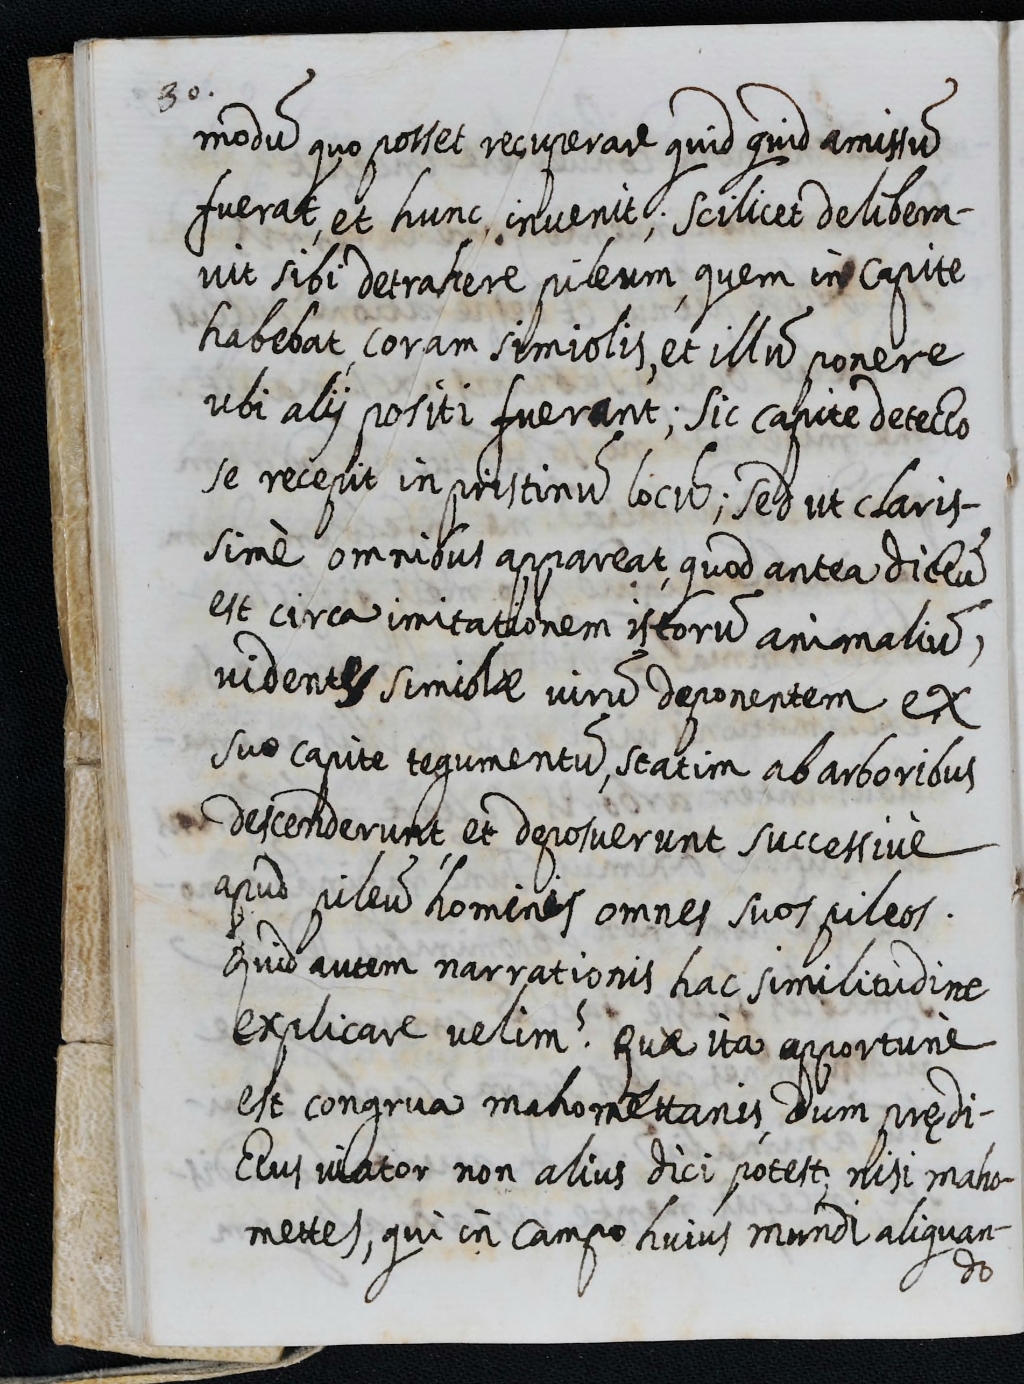 30.
modū quo posset recuperare quid quid amissū
fuerat, et hunc invenit; scilicet delibera-
vit sibi detrahere pileum, quem in capite
habebat, coram simiolis, et illū ponere
ubi alij positi fuerant; sic capite detecto
se recepit in pristinū locū; sed ut claris-
simè omnibus appareat, quod antea dictū
est circa imitationem istorū animaliū,
videntes simiolæ virū deponentem ex
suo capite tegumentū, statim ab arboribus
descenderunt, et deposuerunt successivè
apud pileū hominis omnes suos pileos.
Quid autem narrationis hac similitudine
explicare velim? Quæ ita apportunè
est congrua mahomettanis, dum prędi-
ctus viator non alius dici potest, nisi maho-
mettes, qui in campo huius mundi aliquan-
do